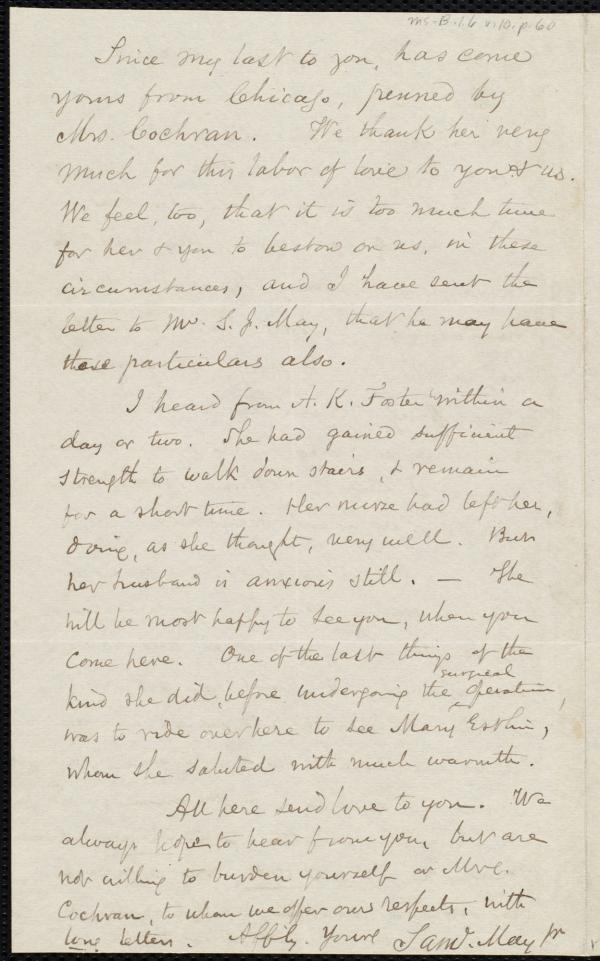 Ms. B. 1.6 v.10, p. 60
Since my last to you, has come
yours from Chicago, penned by
Mrs. Cochran. We thank her very
much for this labor of love to you & us.
We feel, too, that it is too much time
for her & you to bestow on us, in these
circumstances, and I have sent the
letter to Mr. S. J. May, that he may have
these particulars also.
I heard from A. K. Foster within a
day or two. She had gained sufficient
strength to walk down stairs, & remain
for a short time. Her nurse had left her,
doing, as she thought, very well. But
her husband is anxious still. — She
will be most happy to see you, when you
come here. One of the last things of the
kind she did, before undergoing the surgical operation,
was to ride over here to see Mary Estlin,
whom she saluted with much warmth.
All here send love to you. We
always hope to hear from you, but are
not willing to burden yourself or Mrs.
Cochran, to whom we offer our respects, with
long letters. Affly. Yours Saml. May Jr